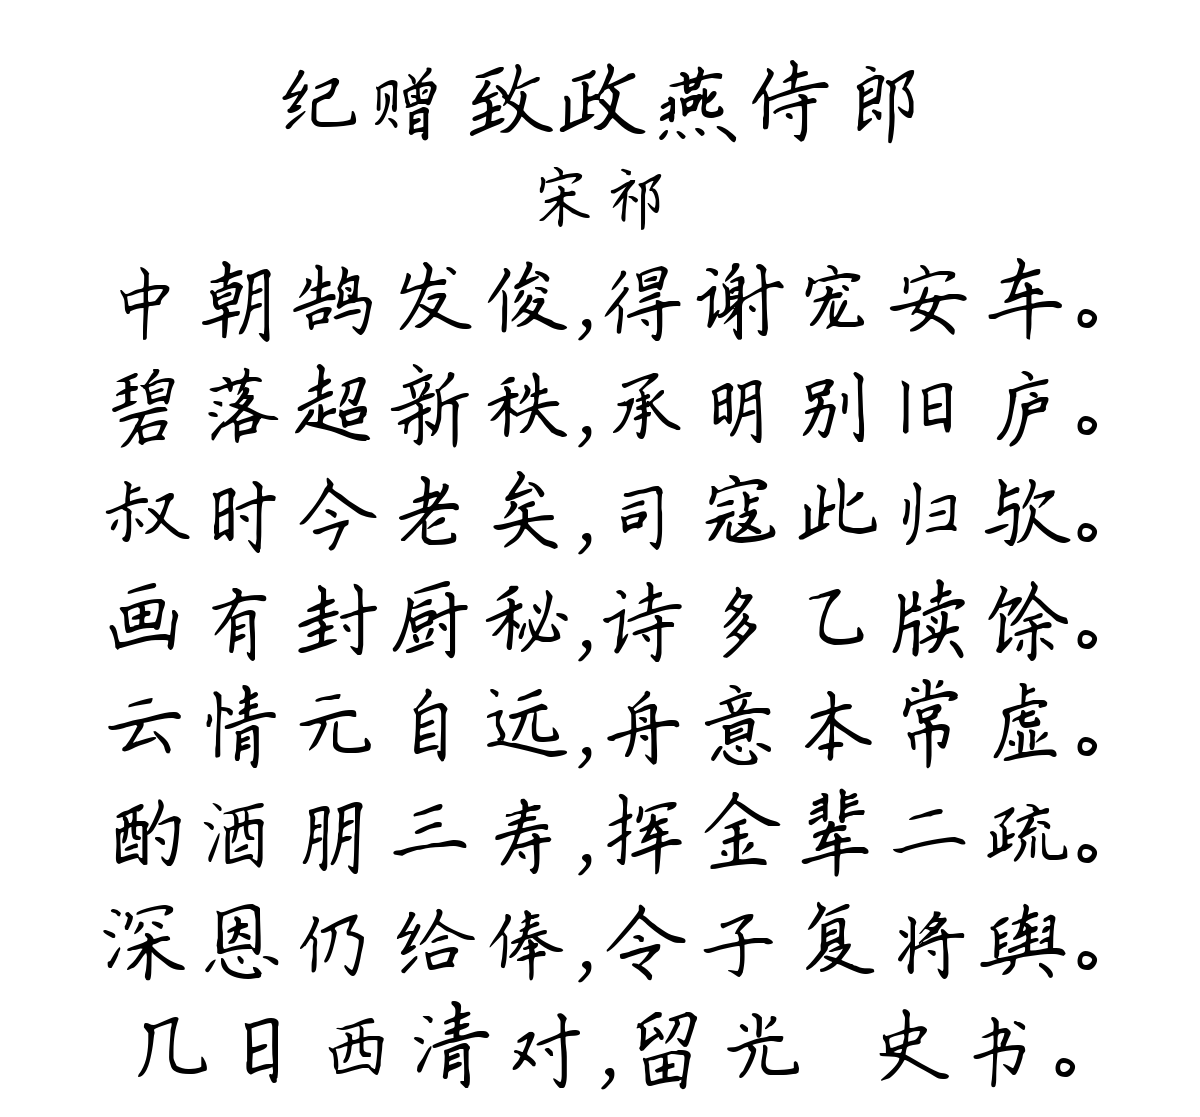 纪赠致政燕侍郎
宋祁
中朝鹄发俊,得谢宠安车。
碧落超新秩,承明别旧庐。
叔时今老矣,司寇此归欤。
画有封厨秘,诗多乙牍馀。
云情元自远,舟意本常虚。
酌酒朋三寿,挥金辈二疏。
深恩仍给俸,令子复将舆。
几日西清对,留光 史书。